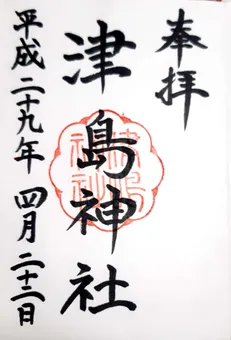 奉拝
津島神社
平成二十九年 四月二十二日